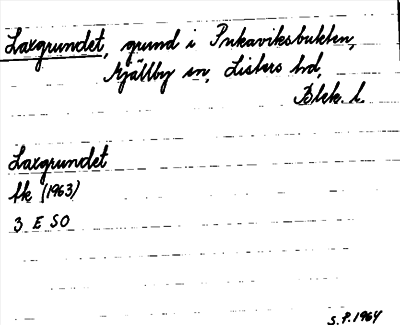 Laxgrundet, grund i Pukaviksbukten,
Mjällby sn, Listers hd,
Blek. l.
Laxgrundet
Sk (1963)
3 E SO
S.P. 1964